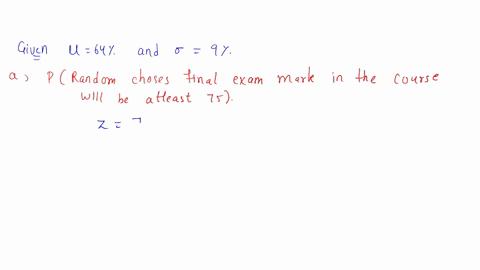 Given u = 64%. and σ = 9%.
a) P ( Random choses final exam mark in the course
will be atleast 75).
z =